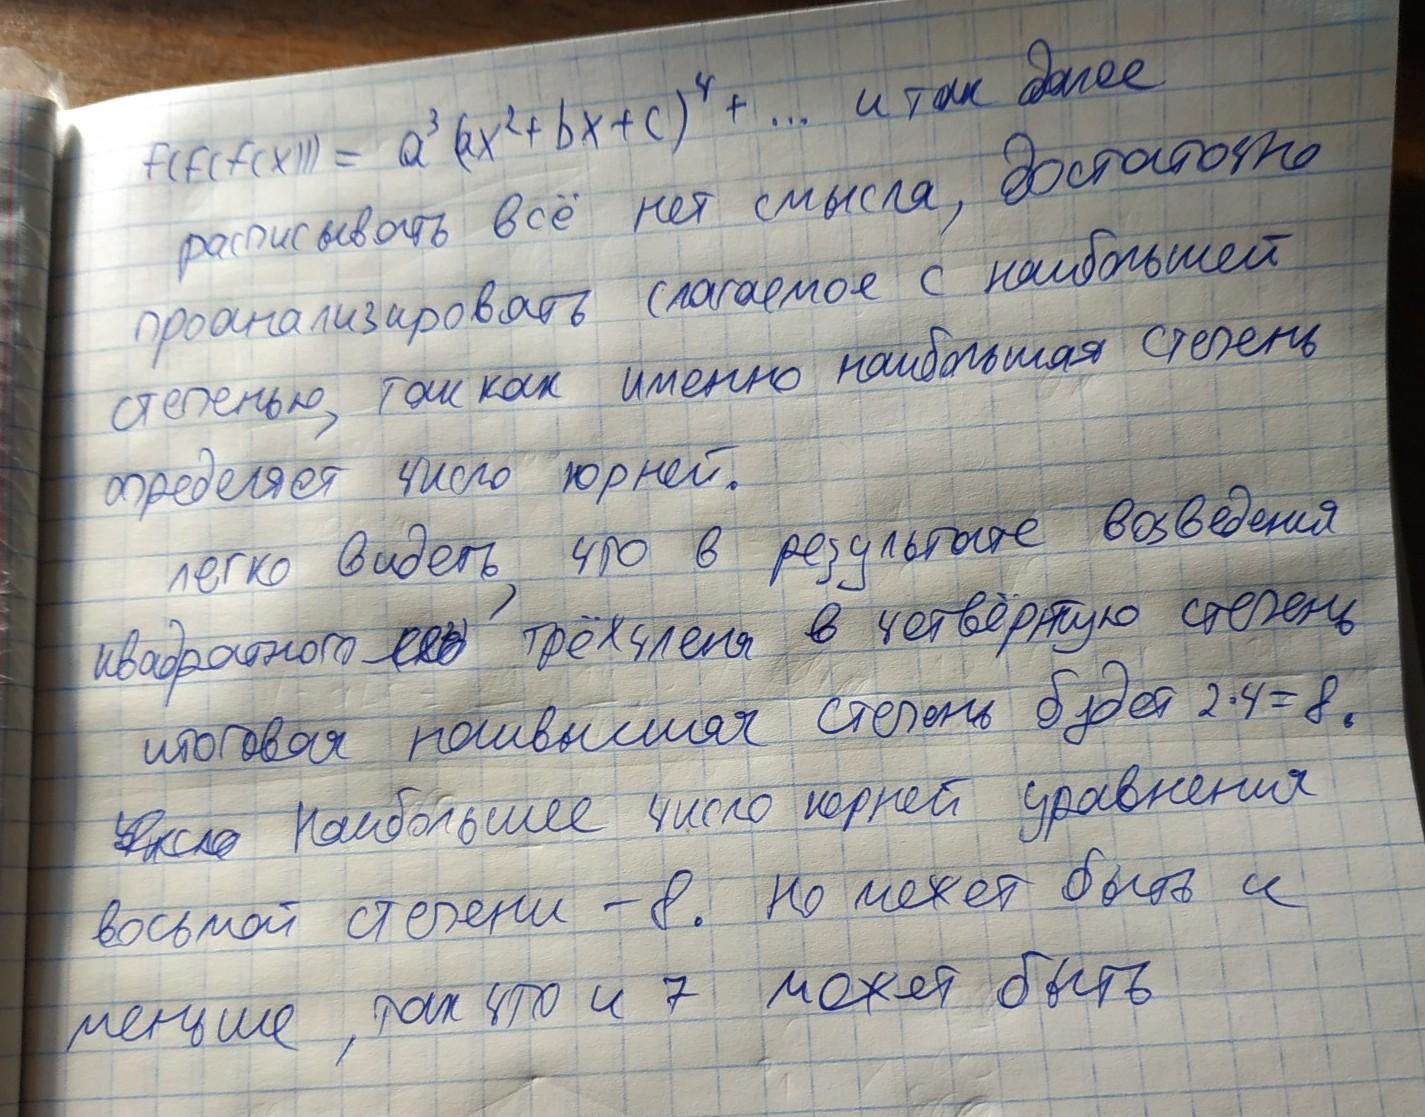 f(f(f(x))) = a³(ax²+bx+c)⁴+... и так далее
расписывать всё нет смысла, достаточно
проанализировать слагаемое с наибольшей
степенью, так как именно наибольшая степень
определяет число корней.
легко видеть, что в результате возведения
квадратного трёхчлена в четвёртую степень
итоговая наивысшая степень будет 2·4=8.
Число Наибольшее число корней уравнения
восьмой степени – 8. Но может быть и
меньше, так что и 7 может быть